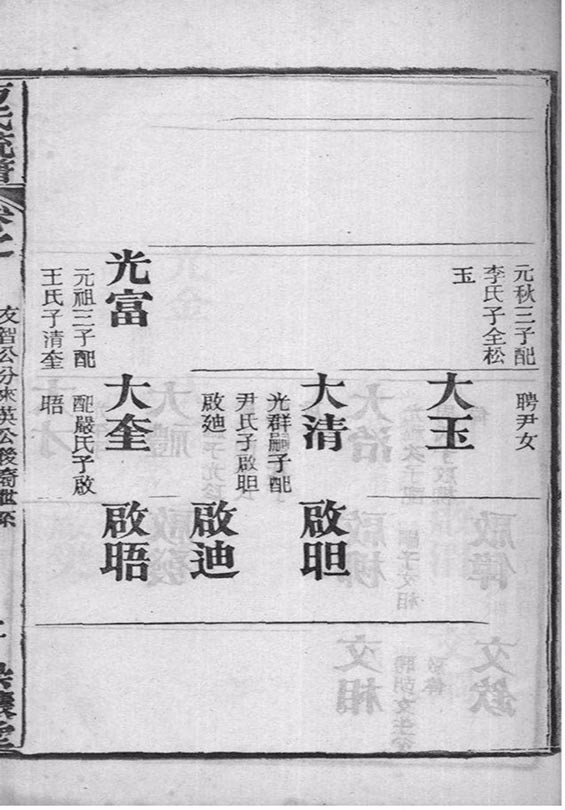 元秋三子配
李氏子全松
玉
大玉
聘尹女
大清
光群嗣子配
尹氏子啟䀿
啟迪
啟䀿
啟迪
光富
元祖三子配
王氏子清奎
大奎
配嚴氏子啟
晤
啟晤
友智公分來英公後裔世系